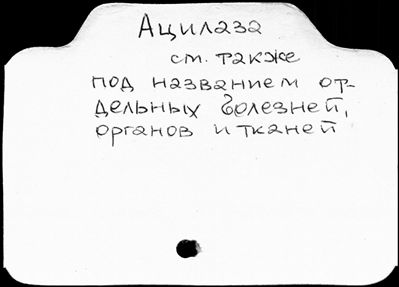 Ацилаза
см. также
под названием от-
дельных болезней,
органов и тканей